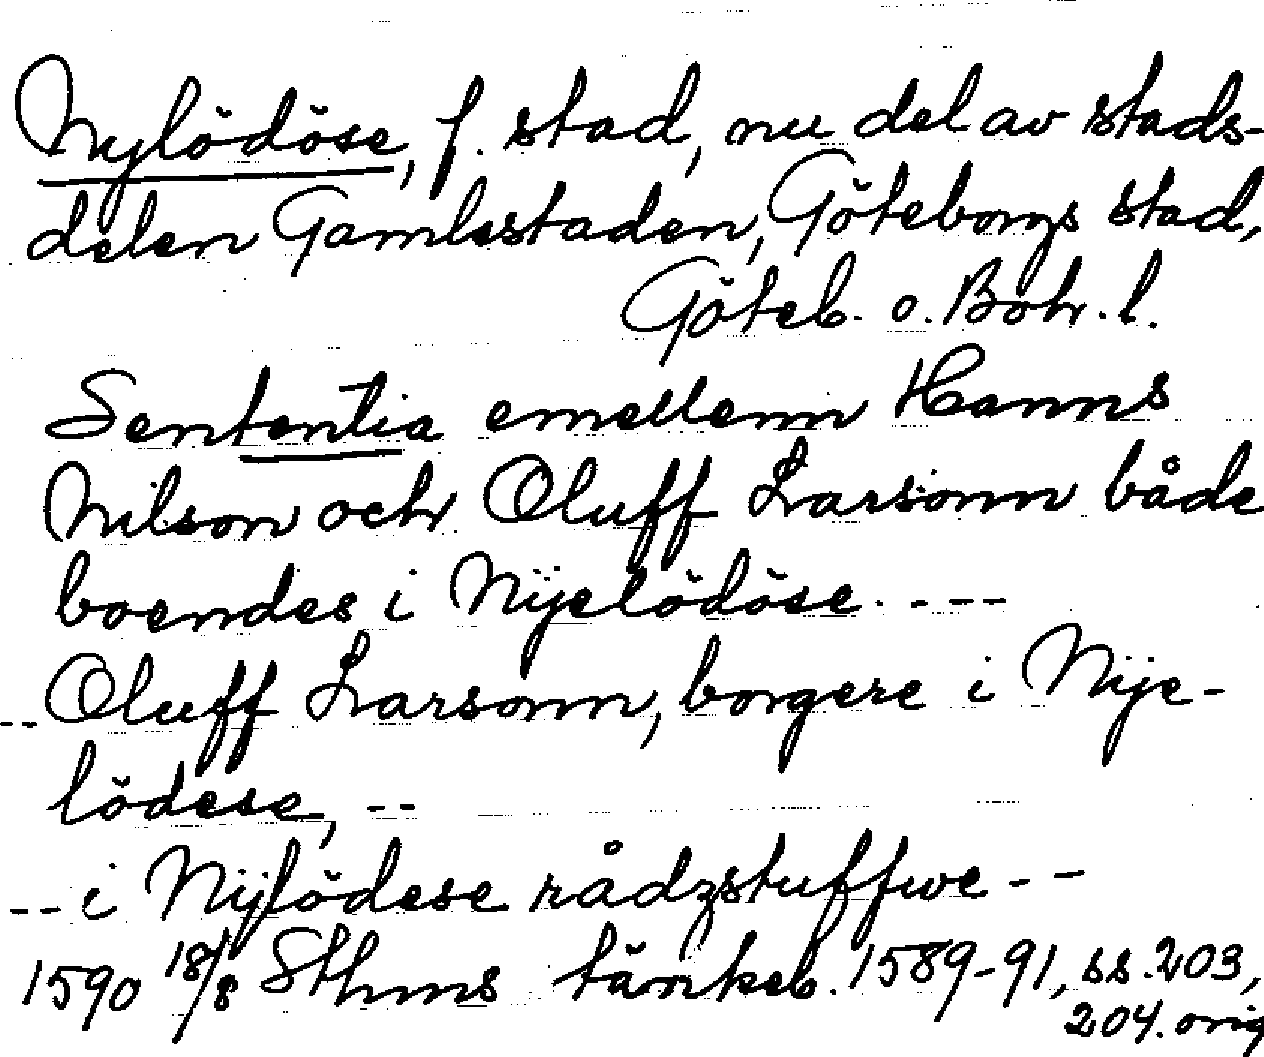 Nylödöse, f. stad, nu del av stads-
delen Gamlestaden, Göteborgs stad,
Göteb. o. Boh. l.
Sententia emellenn Hanns
Nilson och Oluff Larsonn både
boendes i Nÿelödöse. - - -
- - Oluff Larsonn, borgere i Nÿe-
lödese, - -
- - i Nÿlödese rådzstuffwe - -
1590 18/8 Sthms tänkeb. 1589-91, ss. 203,
204. orig